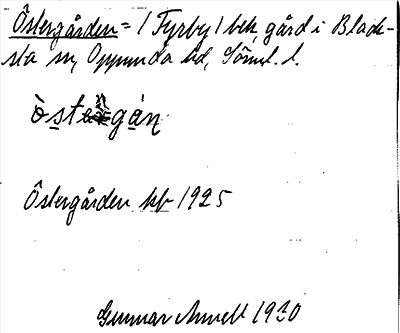 Östergården = (Fyrby) bek, gård i Black-
sta sn, Oppunda hd, Söml. l.
òstergán
Östergården kb 1925
Gunnar 1930